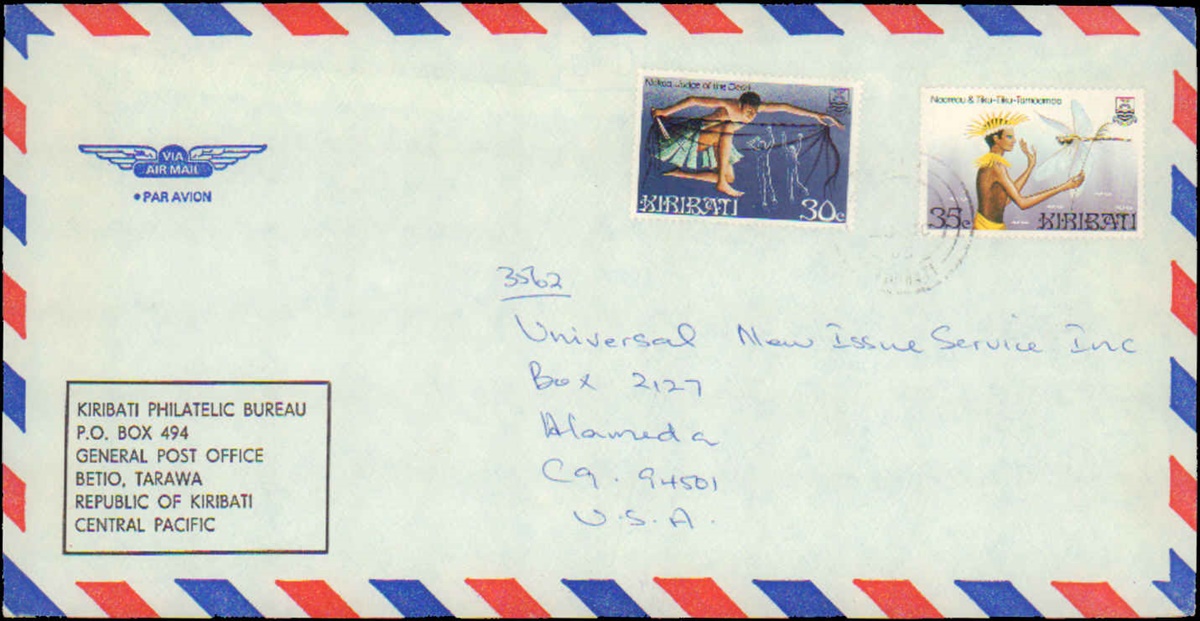 Nakaa, Judge of the Dead
KIRIBATI 30c
Naareau & Tiku-Tiku-Tamoamoa
35c KIRIBATI
VIA
AIR MAIL
•PAR AVION
3562
Universal New Issue Service Inc
Box 2127
Alameda
CA. 94501
U.S.A.
KIRIBATI PHILATELIC BUREAU
P.O. BOX 494
GENERAL POST OFFICE
BETIO, TARAWA
REPUBLIC OF KIRIBATI
CENTRAL PACIFIC